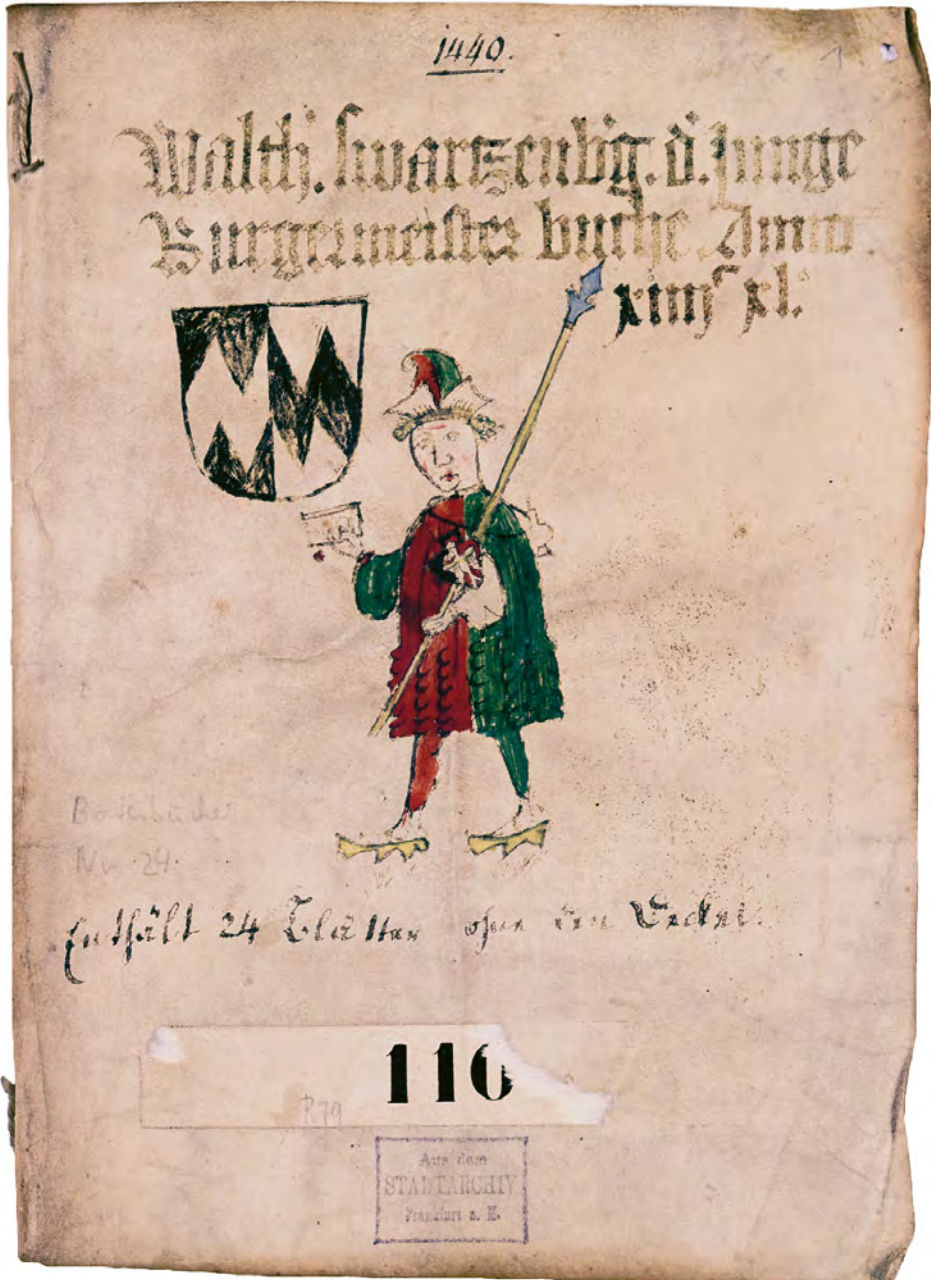 1440.
Walth. swartzenb'g. d'. junge
Burgermeister buche Anno
xiiijc xl.
Botenbücher
Nr. 24.
Enthält 24 Blätter ohne den Deckel.
110
R79
Aus dem
STADTARCHIV
Frankfurt a. M.